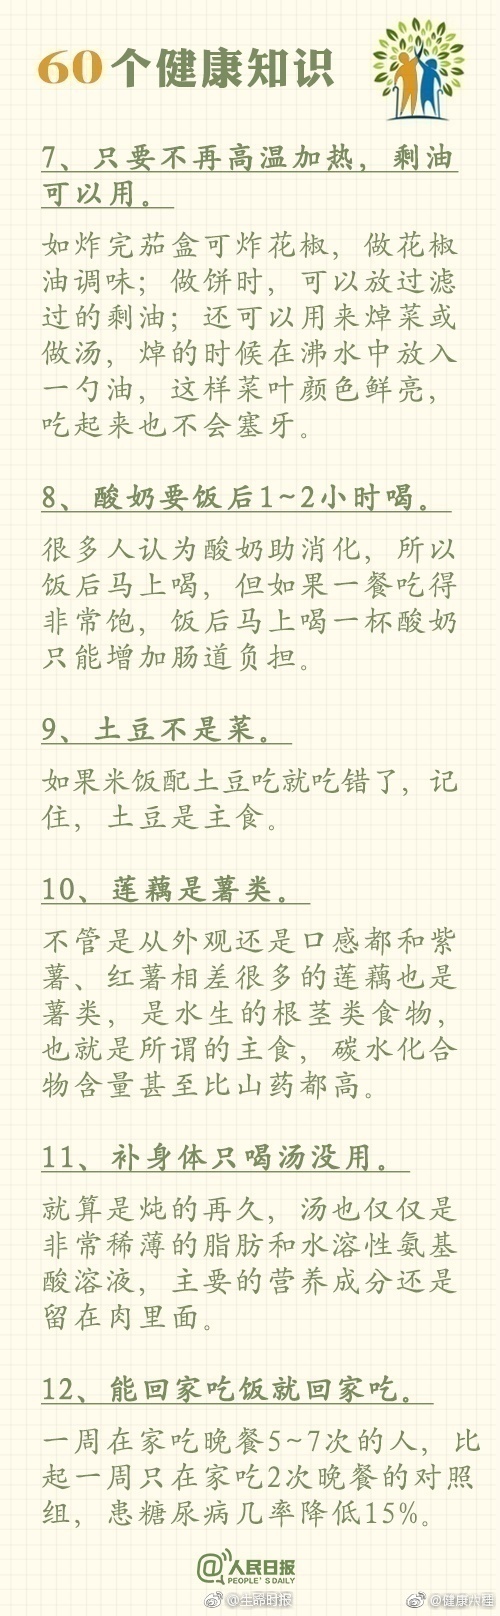 60个健康知识
7、只要不再高温加热，剩油
可以用。
如炸完茄盒可炸花椒，做花椒
油调味；做饼时，可以放过滤
过的剩油；还可以用来焯菜或
做汤，焯的时候在沸水中放入
一勺油，这样菜叶颜色鲜亮，
吃起来也不会塞牙。
8、酸奶要饭后1~2小时喝。
很多人认为酸奶助消化，所以
饭后马上喝，但如果一餐吃得
非常饱，饭后马上喝一杯酸奶
只能增加肠道负担。
9、土豆不是菜。
如果米饭配土豆吃就吃错了，记
住，土豆是主食。
10、莲藕是薯类。
不管是从外观还是口感都和紫
薯、红薯相差很多的莲藕也是
薯类，是水生的根茎类食物，
也就是所谓的主食，碳水化合
物含量甚至比山药都高。
11、补身体只喝汤没用。
就算是炖的再久，汤也仅仅是
非常稀薄的脂肪和水溶性氨基
酸溶液，主要的营养成分还是
留在肉里面。
12、能回家吃饭就回家吃。
一周在家吃晚餐5~7次的人，比
起一周只在家吃2次晚餐的对照
组，患糖尿病几率降低15%。
@人民日报
PEOPLE'S DAILY
@生命时报